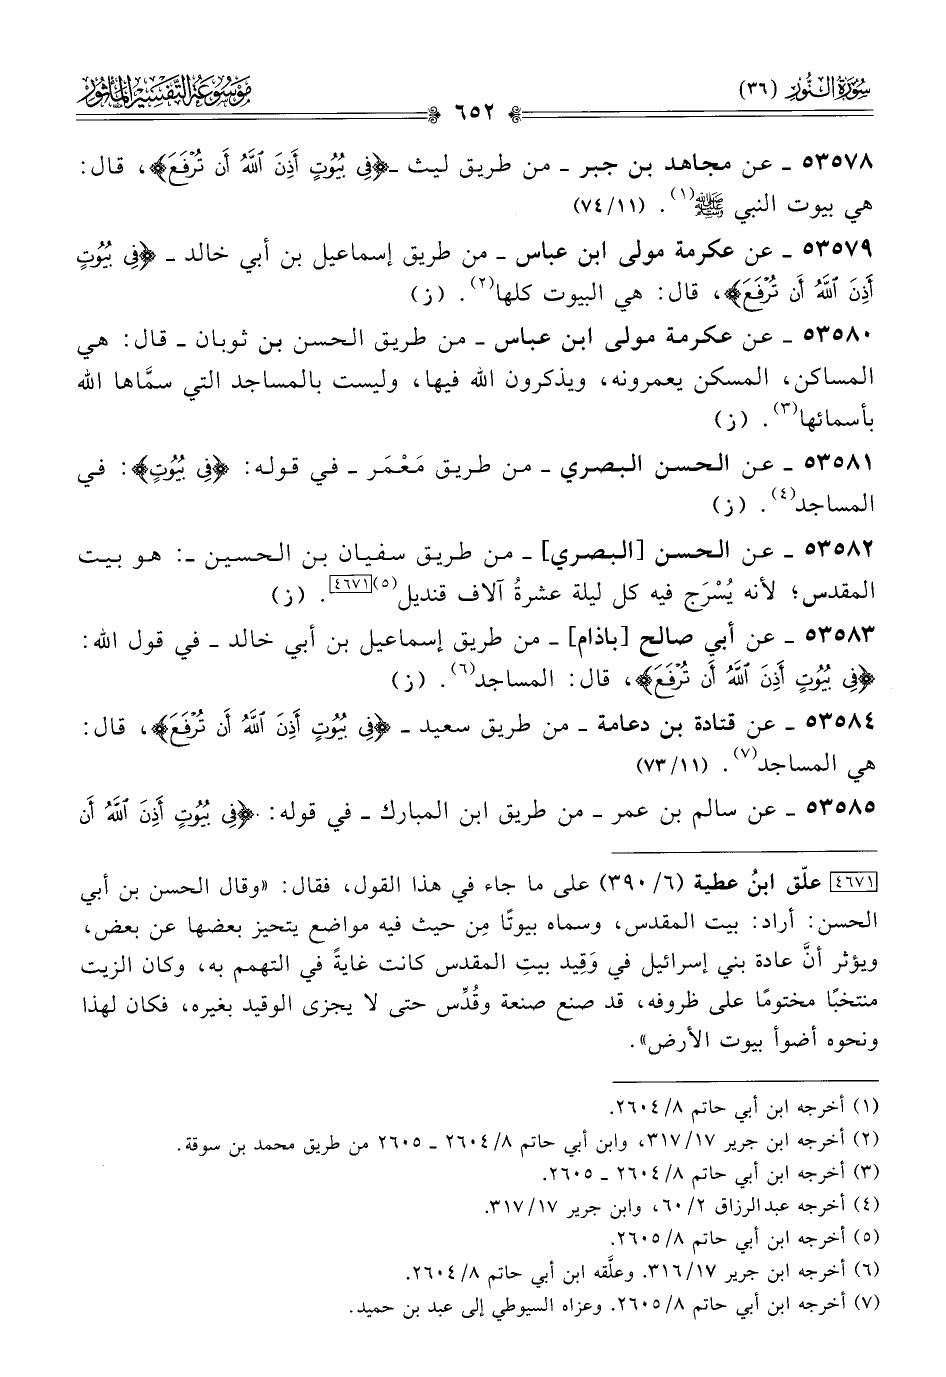 سُورَةُ النُّورِ (٣٦)
٦٥٢
مَوْسُوعَة التَّفْسِيرِ المَأْثُور
٥٣٥٧٨ ـ عن مجاهد بن جبر ـ من طريق ليث ـ ﴿فِي بُيُوتٍ أَذِنَ ٱللَّهُ أَن تُرْفَعَ﴾، قال:
هي بيوت النبي ﷺ(١). (٧٤/١١)
٥٣٥٧٩ ـ عن عكرمة مولى ابن عباس ـ من طريق إسماعيل بن أبي خالد ـ ﴿فِي بُيُوتٍ
أَذِنَ ٱللَّهُ أَن تُرْفَعَ﴾، قال: هي البيوت كلها(٢). (ز)
٥٣٥٨٠ ـ عن عكرمة مولى ابن عباس ـ من طريق الحسن بن ثوبان ـ قال: هي
المساكن، المسكن يعمرونه، ويذكرون الله فيها، وليست بالمساجد التي سمَّاها الله
بأسمائها(٣). (ز)
٥٣٥٨١ ـ عن الحسن البصري ـ من طريق مَعْمَر ـ في قوله: ﴿فِي بُيُوتٍ﴾: في
المساجد(٤). (ز)
٥٣٥٨٢ ـ عن الحسن [البصري] ـ من طريق سفيان بن الحسين ـ: هو بيت
المقدس؛ لأنه يُسْرَج فيه كل ليلة عشرةُ آلاف قنديل(٥)[٤٦٧١]. (ز)
٥٣٥٨٣ ـ عن أبي صالح [باذام] ـ من طريق إسماعيل بن أبي خالد ـ في قول الله:
﴿فِي بُيُوتٍ أَذِنَ ٱللَّهُ أَن تُرْفَعَ﴾، قال: المساجد(٦). (ز)
٥٣٥٨٤ ـ عن قتادة بن دعامة ـ من طريق سعيد ـ ﴿فِي بُيُوتٍ أَذِنَ ٱللَّهُ أَن تُرْفَعَ﴾، قال:
هي المساجد(٧). (٧٣/١١)
٥٣٥٨٥ ـ عن سالم بن عمر ـ من طريق ابن المبارك ـ في قوله: ﴿فِي بُيُوتٍ أَذِنَ ٱللَّهُ أَن
[٤٦٧١] علّق ابنُ عطية (٣٩٠/٦) على ما جاء في هذا القول، فقال: «وقال الحسن بن أبي
الحسن: أراد: بيت المقدس، وسماه بيوتًا مِن حيث فيه مواضع يتحيز بعضها عن بعض،
ويؤثر أنَّ عادة بني إسرائيل في وَقِيد بيتِ المقدس كانت غايةً في التهمم به، وكان الزيت
منتخبًا مختومًا على ظروفه، قد صنع صنعة وقُدِّس حتى لا يجزى الوقيد بغيره، فكان لهذا
ونحوه أضوأ بيوت الأرض».
(١) أخرجه ابن أبي حاتم ٢٦٠٤/٨.
(٢) أخرجه ابن جرير ٣١٧/١٧، وابن أبي حاتم ٢٦٠٤/٨ ـ ٢٦٠٥ من طريق محمد بن سوقة.
(٣) أخرجه ابن أبي حاتم ٢٦٠٤/٨ ـ ٢٦٠٥.
(٤) أخرجه عبدالرزاق ٦٠/٢، وابن جرير ٣١٧/١٧.
(٥) أخرجه ابن أبي حاتم ٢٦٠٥/٨.
(٦) أخرجه ابن جرير ٣١٦/١٧. وعلَّقه ابن أبي حاتم ٢٦٠٤/٨.
(٧) أخرجه ابن أبي حاتم ٢٦٠٥/٨. وعزاه السيوطي إلى عبد بن حميد.